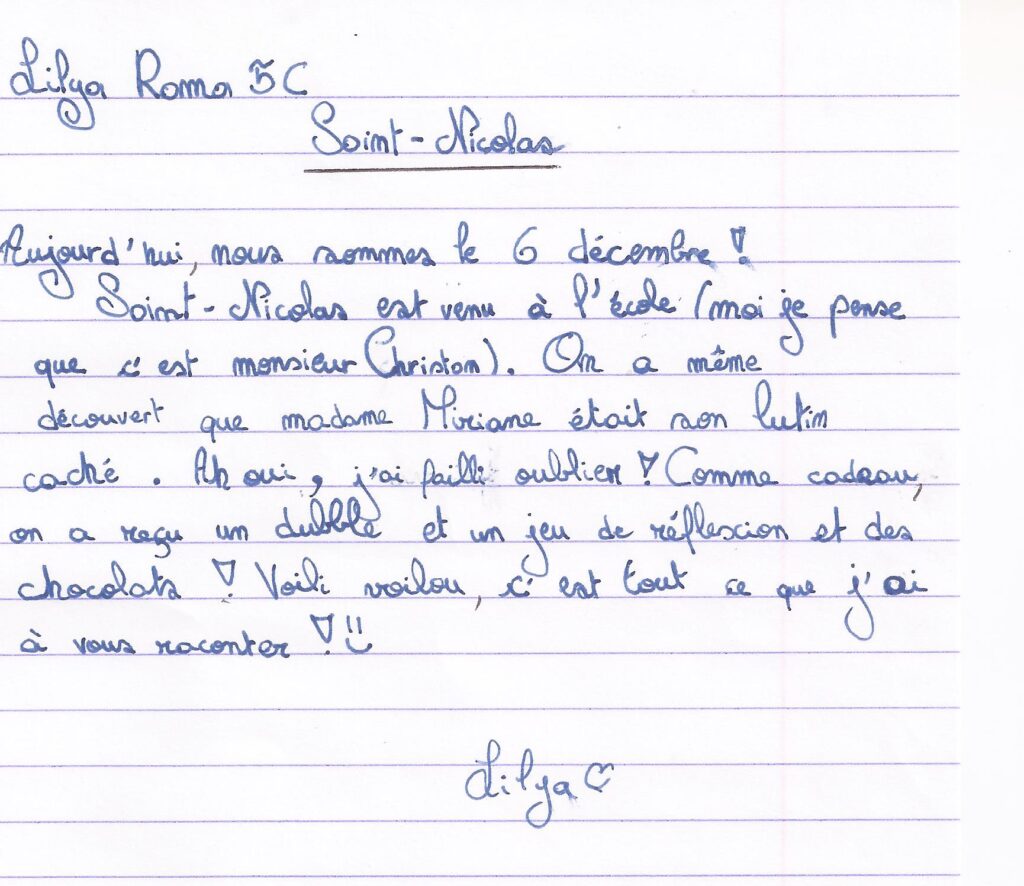 Lilya Roma 5C
Saint-Nicolas
Aujourd'hui, nous sommes le 6 décembre !
Saint-Nicolas est venu à l'école (moi je pense
que c'est monsieur Christom). On a même
découvert que madame Miriane était son lutin
caché. Ah oui, j'ai failli oublier ! Comme cadeau,
on a reçu un dubble et un jeu de réflescion et des
chocolats ! Voili voilou, c'est tout ce que j'ai
à vous raconter !
Lilya